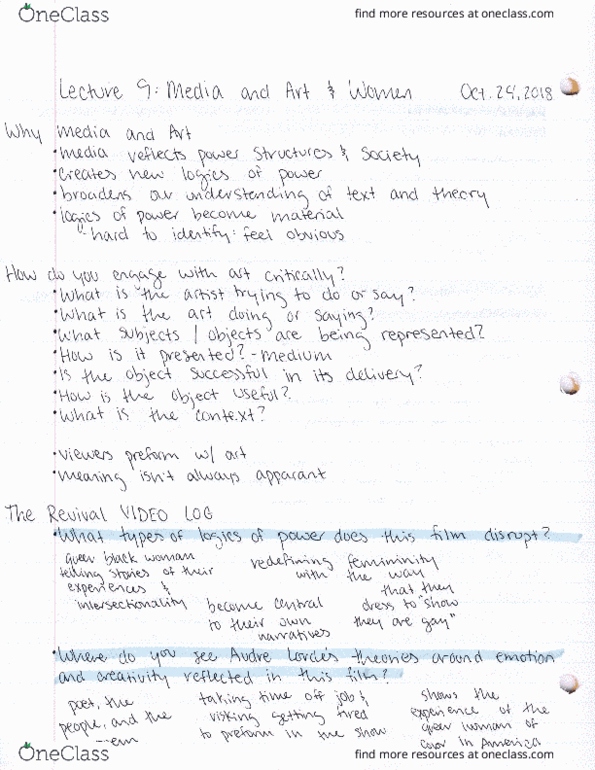 OneClass
find more resources at oneclass.com
Lecture 9: Media and Art & Women Oct. 24, 2018
Why Media and Art
• media reflects power structures & society
• creates new logics of power
• broadens our understanding of text and theory
• logics of power become material
↳ hard to identify: feel obvious
How do you engage with art critically?
• What is the artist trying to do or say?
• What is the art doing or saying?
• What subjects / objects are being represented?
• How is it presented? - Medium
• Is the object successful in its delivery?
• How is the object useful?
• What is the context?
• viewers preform w/ art
• meaning isn't always apparant
The Revival VIDEO LOG
• What types of logics of power does this film disrupt?
queer black woman
telling stories of their
experiences &
intersectionality
become central
to their own
narratives
redefining femininity
with the way
that they
dress to "show
they are gay"
• Where do you see Audre Lorde's theories around emotion
and creativity reflected in this film?
poet, the
people, and the
taking time off job &
risking getting fired
to preform in the show
shows the
experience of the
queer woman of
color in America
OneClass
find more resources at oneclass.com